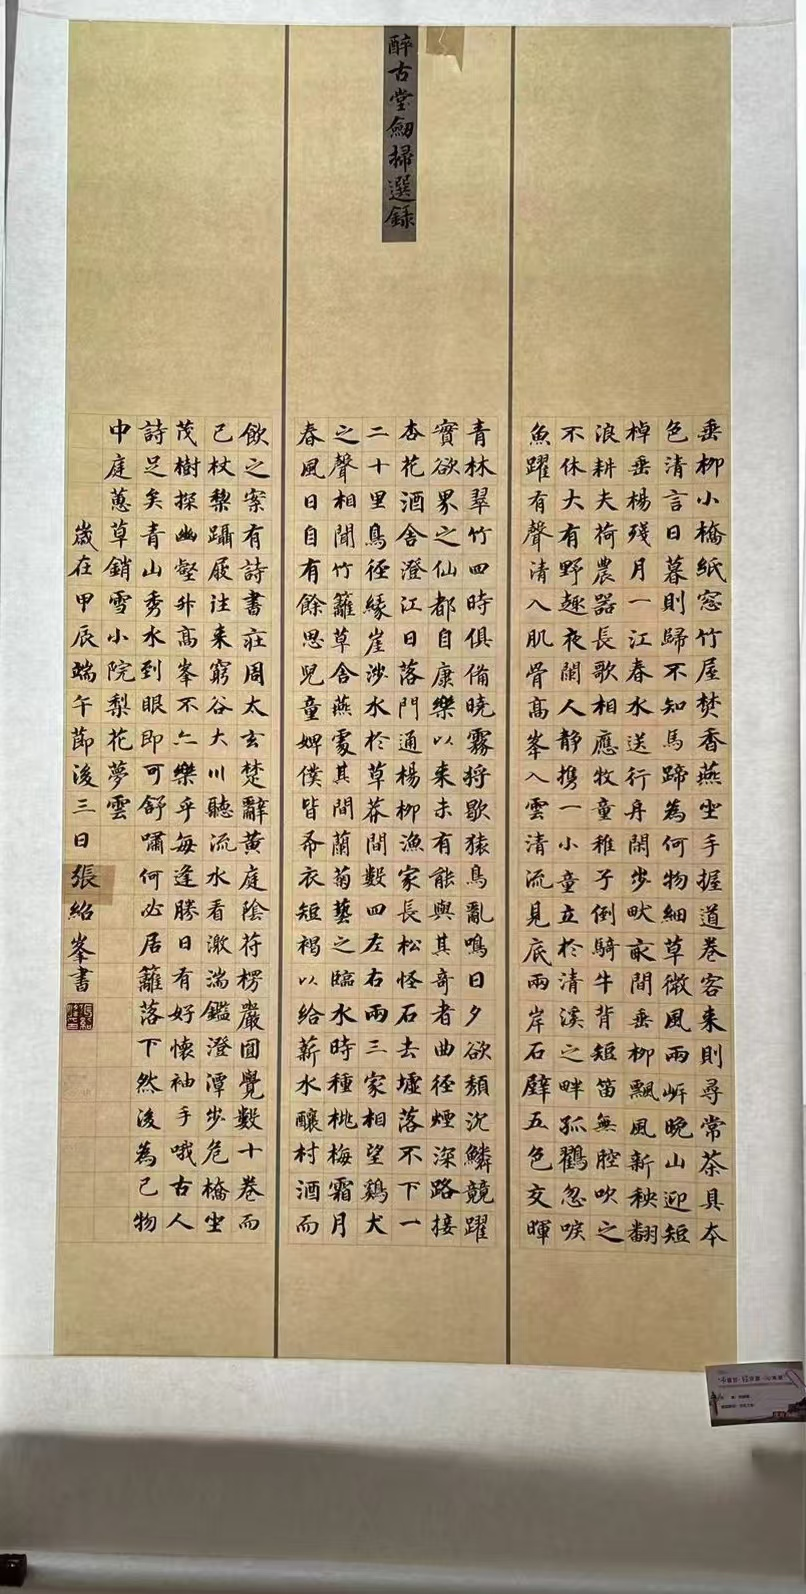 醉古堂劒掃選録
垂柳小橋紙窓竹屋焚香燕坐手握道卷客来則尋常茶具本
色清言日暮則歸不知馬蹄為何物細草微風兩岍晚山迎短
棹垂楊殘月一江春水送行舟閑步畎畝間垂柳飄風新秧翻
浪耕夫荷農器長歌相應牧童稚子倒騎牛背短笛無腔吹之
不休大有野趣夜闌人静携一小童立於清溪之畔孤鶴忽唳
魚躍有聲清入肌骨高峯入雲清流見底兩岸石壁五色交暉
青林翠竹四時俱備曉霧将歇猿鳥亂鳴日夕欲頹沉鱗競躍
實欲界之仙都自康樂以来未有能與其奇者曲径煙深路接
杏花酒舍澄江日落門通楊柳漁家長松怪石去墟落不下一
二十里鳥径緣崖涉水於草莽間數四左右兩三家相望鷄犬
之聲相聞竹籬草舍燕處其間蘭菊藝之臨水時種桃梅霜月
春風日自有餘思兒童婢僕皆布衣短褐以給薪水釀村酒而
飲之案有詩書莊周太玄楚辭黄庭陰符楞嚴圓覺數十卷而
己杖藜躡屐往来窮谷大川聽流水看激湍鑑澄潭步危橋坐
茂樹探幽壑升高峯不亦樂乎每逢勝日有好懷袖手哦古人
詩足矣青山秀水到眼即可舒嘯何必居籬落下然後為己物
中庭蕙草銷雪小院梨花夢雲
歳在甲辰端午節後三日張紹峯書